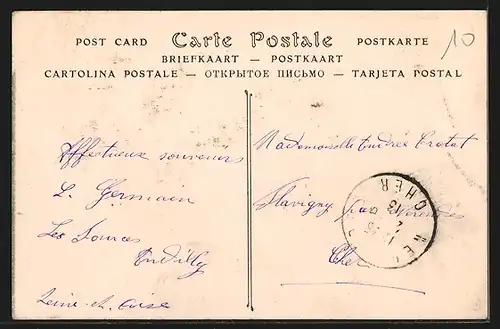 POST CARD Carte Postale POSTKARTE
BRIEFKAART — POSTKAART
CARTOLINA POSTALE — ОТКРЫТОЕ ПИСЬМО — TARJETA POSTAL
10
Affectueux souvenirs
L. Germain
Les Sources
Andilly
Seine-et-Oise
Mademoiselle Andrée
Flavigny par
Cher
CHER
13